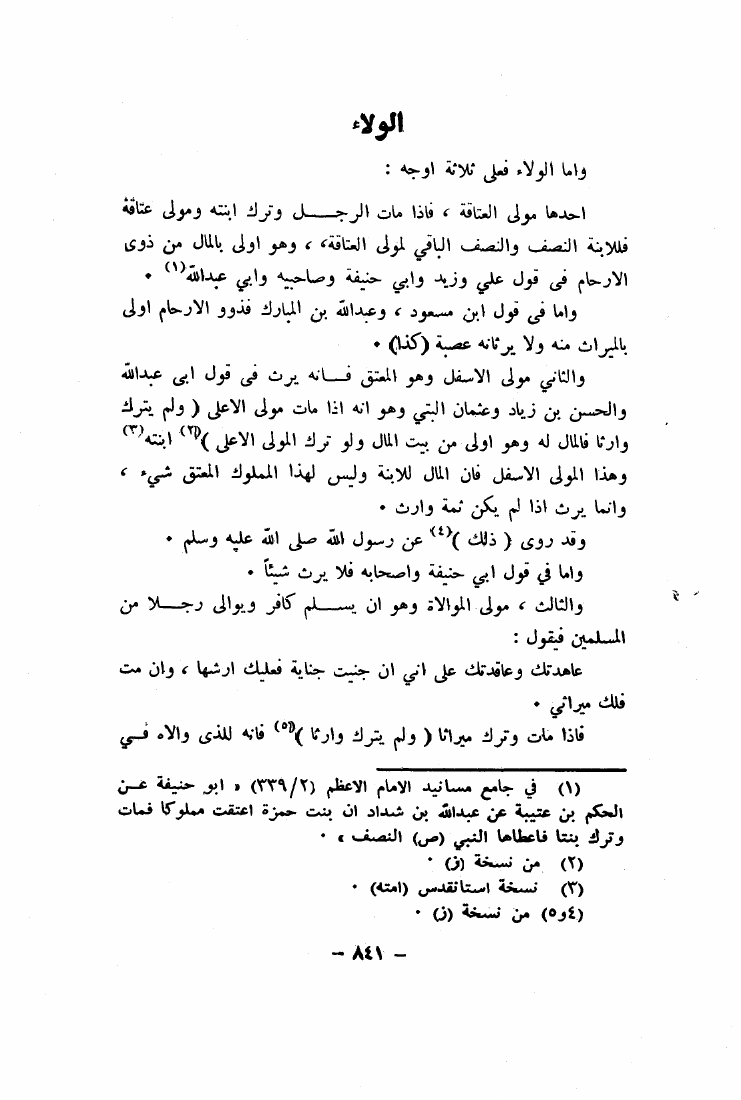 الولاء
واما الولاء فعلى ثلاثة اوجه :
احدها مولى العتاقة ، فاذا مات الرجــــل وترك ابنته ومولى عتاقة
فللابنة النصف والنصف الباقي لمولى العتاقة، ، وهو اولى بالمال من ذوى
الارحام فى قول علي وزيد وابي حنيفة وصاحبيه وابي عبدالله(١) ٠
واما فى قول ابن مسعود ، وعبدالله بن المبارك فذوو الارحام اولى
بالميراث منه ولا يرثانه عصبة (كذا) ٠
والثاني مولى الاسفل وهو المعتق فــانه يرث فى قول ابى عبدالله
والحسن بن زياد وعثمان البتي وهو انه اذا مات مولى الاعلى ( ولم يترك
وارثا فالمال له وهو اولى من بيت المال ولو ترك المولى الاعلى )(٢) ابنته(٣)
وهذا المولى الاسفل فان المال للابنة وليس لهذا المملوك المعتق شيء ،
وانما يرث اذا لم يكن ثمة وارث ٠
وقد روى ( ذلك )(٤) عن رسول الله صلى الله عليه وسلم ٠
واما في قول ابي حنيفة واصحابه فلا يرث شيئاً ٠
والثالث ، مولى الموالاة وهو ان يســلم كافر ويوالى رجــلا من
المسلمين فيقول :
عاهدتك وعاقدتك على اني ان جنيت جناية فعليك ارشها ، وان مت
فلك ميراثي ٠
فاذا مات وترك ميراثا ( ولم يترك وارثا )(٥) فانه للذى والاه فــي
(١) في جامع مسانيد الامام الاعظم (٣٣٩/٢) « ابو حنيفة عــن
الحكم بن عتيبة عن عبدالله بن شداد ان بنت حمزة اعتقت مملوكا فمات
وترك بنتا فاعطاها النبي (ص) النصف » ٠
(٢) من نسخة (ز) ٠
(٣) نسخة استانقدس (امته) ٠
(٤و٥) من نسخة (ز) ٠
– ٨٤١ –